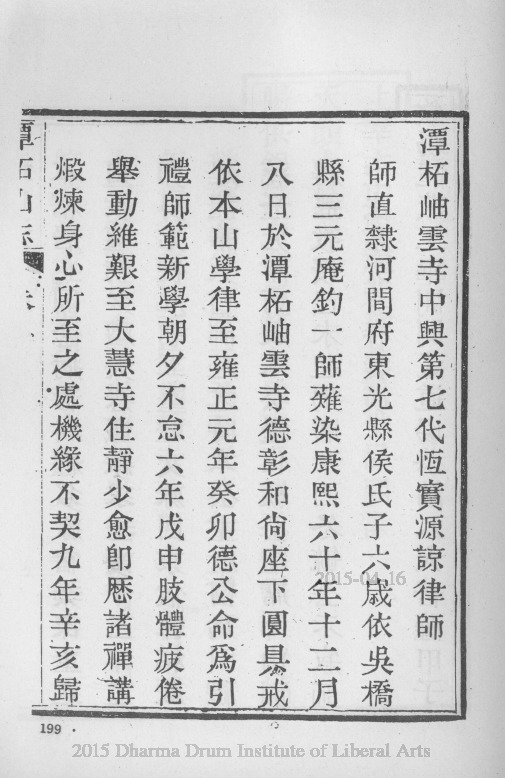 潭柘岫雲寺中興第七代恆實源諒律師
師直隸河間府東光縣侯氏子六歲依吳橋
縣三元庵釣一師薙染康熙六十年十二月
八日於潭柘岫雲寺德彰和尙座下圓具戒
依本山學律至雍正元年癸卯德公命爲引
禮師範新學朝夕不怠六年戊申肢體疲倦
舉動維艱至大慧寺住靜少愈卽歷諸禪講
煅煉身心所至之處機緣不契九年辛亥歸
潭柘山志
199
2015-04-16
2015 Dharma Drum Institute of Liberal Arts